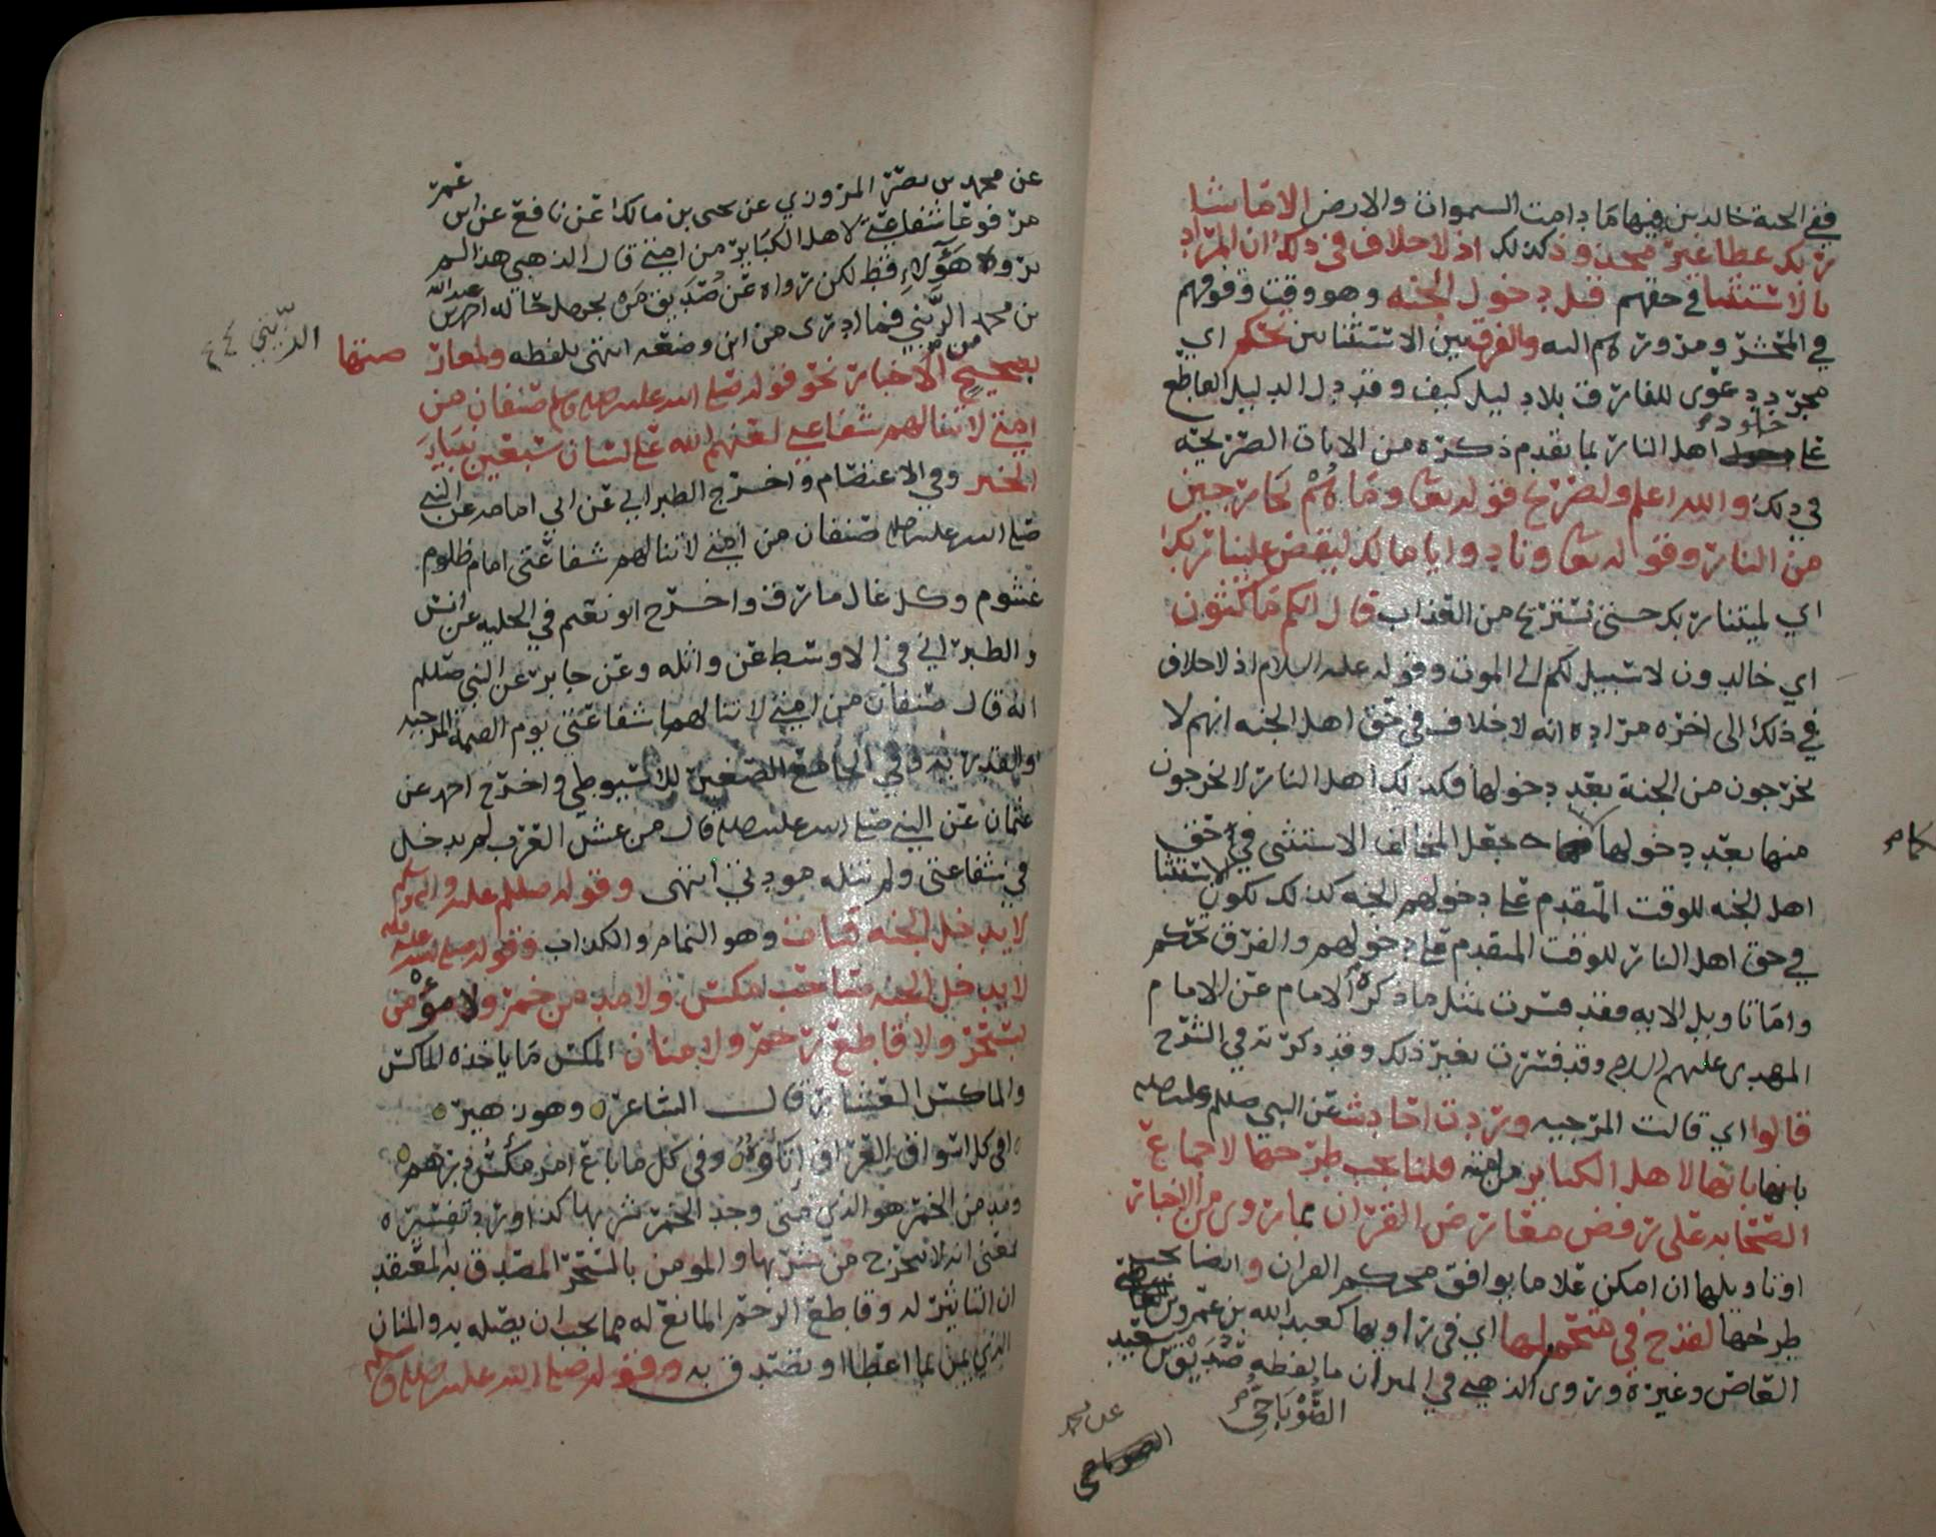 ففي الجنة خالدين فيها ما دامت السموات والارض الا ما شا
ربك عطا غير مجذوذ كذلك اذ لا خلاف في ذلك ان المراد
بالاستثنا في حقهم قبل دخول الجنه وهو وقت وقوفهم
في المحشر ومرورهم اليه والفرق بين الاستثنائين تحكم اي
مجرد دعوى للفارق بلا دليل كيف وقد دل الدليل القاطع
على خلود اهل النار بما تقدم ذكره من الايات الصريحه
في ذلك والله اعلم ولصريح قوله تعالى وما هم بخارجين
من النار وقوله تعالى ونادوا يا مالك ليقض علينا ربك
اي ليمتنا ربك حتى نستريح من العذاب قال انكم ماكثون
اي خالدون لا سبيل لكم الى الموت وقوله عليه السلام اذ لا خلاف
في ذلك الى اخره مراده انه لا خلاف في حق اهل الجنه انهم لا
يخرجون من الجنة بعد دخولها فكذلك اهل النار لا يخرجون
منها بعد دخولها فكما جعل المخالف الاستثنى في حق
اهل الجنه للوقت المتقدم على دخولهم الجنه كذلك يكون الاستثنا
في حق اهل النار للوقت المتقدم على دخولهم والفرق تحكم
واما تاويل الايه فقد فسرت بمثل ما ذكره الامام عن الامام
المهدي عليهم السلام وقد فسرت بغير ذلك وقد ذكرته في الشرح
قالوا اي قالت المرجيه وردت احاديث عن النبي صللم
بانها لاهل الكباير من امته قلنا يجب طرحها لاجماع
الصحابه على رفض معارض القران مما روي من الاخبار
او تاويلها ان امكن على ما يوافق محكم القران وايضا يجب
طرحها لقدح في متحمليها اي في راويها كعبد الله بن عمرو بن العاص
القاص وغيره وروى الذهبي في الميزان ما لفظه صديق بن سعيد
الصوناخي
عن محمد
عن محمد بن نصر المروزي عن يحيى بن مالك عن نافع عن ابن عمر
مرفوعا شفاعتي لاهل الكباير من امتي قال الذهبي هذا لم
يروه هؤلاء قط لكن رواه عن صديق من يجهل حاله احمد بن عبد الله
بن محمد الزيني فما ادري من اين وضعه انتهى بلفظه ولمعارضتها
الزيني
بصحيح من الاخبار نحو قوله صلى الله عليه وسلم صنفان من
امتي لا تنالهم شفاعتي لعنهم الله على لسان سبعين نبيا
الخبر وفي الاعتصام واخرج الطبراني عن ابي امامه عن النبي
صلى الله عليه صنفان من امتي لا تنالهم شفاعتي امام ظلوم
غشوم وكل غال مارق واخرج ابو نعيم في الحليه عن انس
والطبراني في الاوسط عن واثله وعن جابر عن النبي صللم
انه قال صنفان من امتي لا تنالهما شفاعتي يوم القيمة المرجيه
والقدريه وفي الجامع الصغير للاسيوطي واخرج احمد عن
عثمان عن النبي صلى الله عليه قال من غش العرب لم يدخل
في شفاعتي ولم تنله مودتي انتهى وقوله صللم عليه واله وسلم
لا يدخل الجنه قتات وهو النمام والكذاب وقوله صلى الله عليه
لا يدخل الجنه صاحب مكس ولا مدمن خمر ولا مؤمن
بسحر ولا قاطع رحم ولا منان المكس ما ياخذه الماكس
والماكس العشار قال الشاعر وهو زهير
افي كل اسواق العراق اتاوة وفي كل ما باع امرؤ مكس درهم
ومدمن الخمر هو الذي متى وجد الخمر شربها كذا ورد تفسيره
بمعنى انه لا يتحرج من شربها والمومن بالسحر المصدق به المعتقد
ان التاثير له وقاطع الرحم المانع له مما يجب ان يصله به والمنان
الذي يمن بما اعطا او تصدق به وقوله صلى الله عليه وسلم